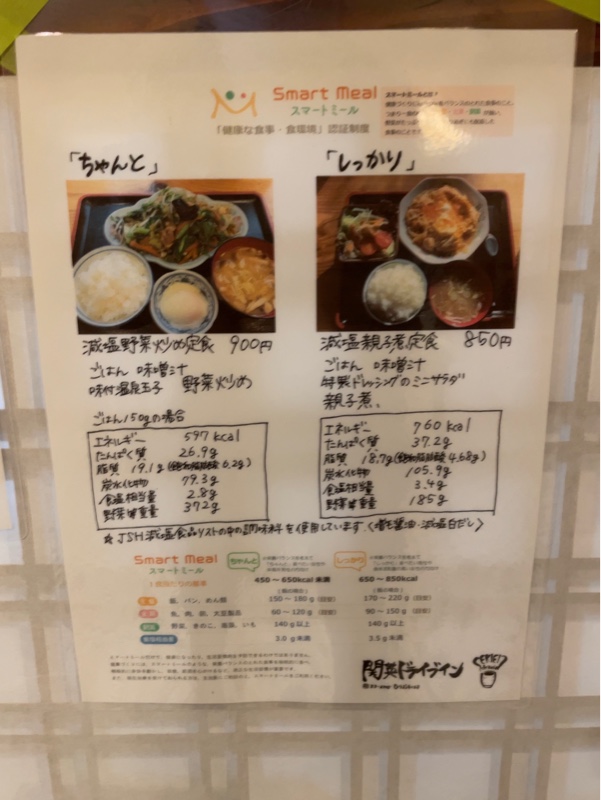 Smart Meal
スマートミール
「健康な食事・食環境」認証制度
スマートミールとは?
「ちゃんと」
「しっかり」
減塩野菜炒め定食 900円
ごはん 味噌汁
味付温泉玉子 野菜炒め
減塩親子煮定食 850円
ごはん 味噌汁
特製ドレッシングのミニサラダ
親子煮、
ごはん150gの場合
エネルギー 597 kcal
たんぱく質 26.9g
脂質 19.1g(飽和脂肪酸 6.2g)
炭水化物 79.3g
食塩相当量 2.8g
野菜等重量 372g
エネルギー 760 kcal
たんぱく質 37.2g
脂質 18.7g(飽和脂肪酸 4.68g)
炭水化物 105.9g
食塩相当量 3.4g
野菜等重量 185g
☆JSH減塩食品リストの中の調味料を使用しています。〈増毛醤油・減塩白だし〉
Smart Meal
スマートミール
ちゃんと
しっかり
450～650kcal未満
650～850kcal
飯、パン、めん類 150～180g(目安) 170～220g(目安)
魚、肉、卵、大豆製品 60～120g(目安) 90～150g(目安)
野菜、きのこ、海藻、いも 140g以上 140g以上
食塩相当量 3.0g未満 3.5g未満
関英ドライブイン